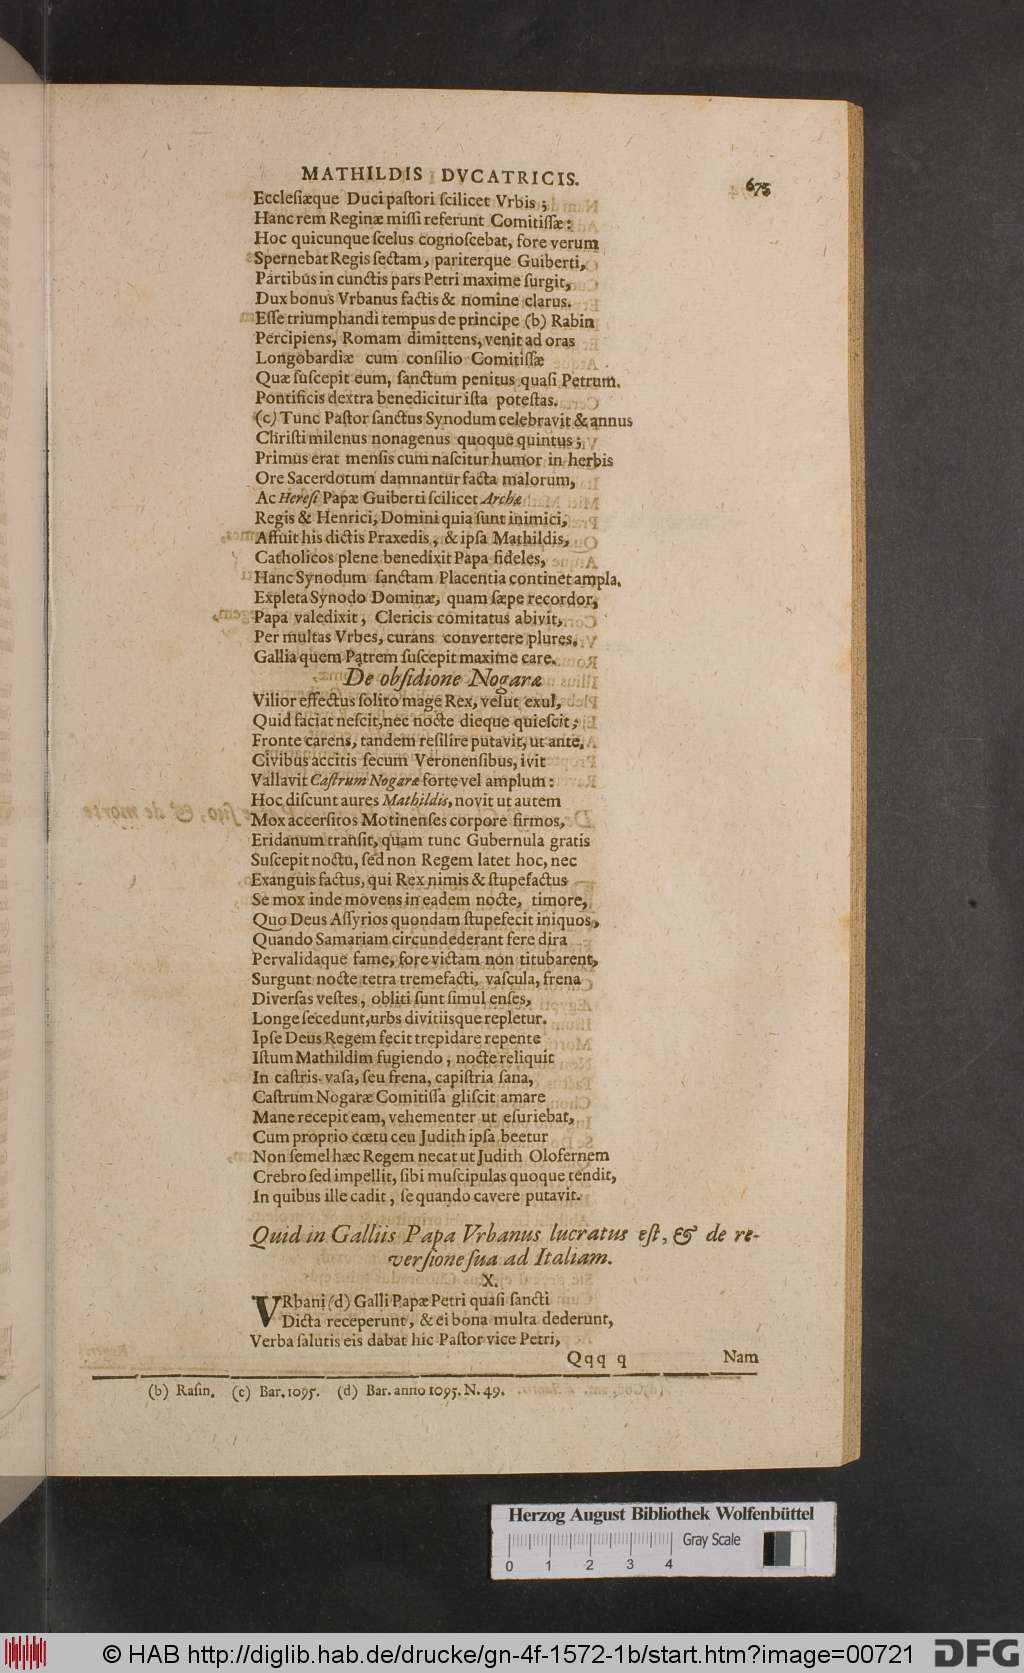 MATHILDIS DVCATRICIS. 675
Ecclesiæque Duci pastori scilicet Vrbis;
Hanc rem Reginæ missi referunt Comitissæ:
Hoc quicunque scelus cognoscebat, fore verum
Spernebat Regis sectam, pariterque Guiberti,
Partibus in cunctis pars Petri maxime surgit,
Dux bonus Vrbanus factis & nomine clarus.
Esse triumphandi tempus de principe (b) Rabin
Percipiens, Romam dimittens, venit ad oras
Longobardiæ cum consilio Comitissæ
Quæ suscepit eum, sanctum penitus quasi Petrum.
Pontificis dextra benedicitur ista potestas.
(c) Tunc Pastor sanctus Synodum celebravit & annus
Christi milenus nonagenus quoque quintus;
Primus erat mensis cum nascitur humor in herbis
Ore Sacerdotum damnantur facta malorum,
Ac Heresi Papæ Guiberti scilicet Archæ
Regis & Henrici, Domini quia sunt inimici,
Affuit his dictis Praxedis, & ipsa Mathildis,
Catholicos plene benedixit Papa fideles,
Hanc Synodum sanctam Placentia continet ampla.
Expleta Synodo Dominæ, quam sæpe recordor,
Papa valedixit, Clericis comitatus abivit,
Per multas Vrbes, curans convertere plures.
Gallia quem Patrem suscepit maxime care.
De obsidione Nogaræ
Vilior effectus solito mage Rex, velut exul,
Quid faciat nescit, nec nocte dieque quiescit;
Fronte carens, tandem resilire putavit, ut ante.
Civibus accitis secum Veronensibus, ivit
Vallavit Castrum Nogaræ forte vel amplum:
Hoc discunt aures Mathildis, novit ut autem
Mox accersitos Motinenses corpore firmos,
Eridanum transit, quam tunc Gubernula gratis
Suscepit noctu, sed non Regem latet hoc, nec
Exanguis factus, qui Rex nimis & stupefactus
Se mox inde movens in eadem nocte, timore,
Quo Deus Assyrios quondam stupefecit iniquos,
Quando Samariam circundederant fere dira
Pervalidaque fame, fore victam non titubarent,
Surgunt nocte tetra tremefacti, vascula, frena
Diversas vestes, obliti sunt simul enses,
Longe secedunt, urbs divitiisque repletur.
Ipse Deus Regem fecit trepidare repente
Istum Mathildim fugiendo, nocte reliquit
In castris vasa, seu frena, capistria sana,
Castrum Nogaræ Comitissa gliscit amare
Mane recepit eam, vehementer ut esuriebat,
Cum proprio cœtu ceu Judith ipsa beetur
Non semel hæc Regem necat ut Judith Olofernem
Crebro sed impellit, sibi muscipulas quoque tendit,
In quibus ille cadit, se quando cavere putavit.
Quid in Galliis Papa Vrbanus lucratus est, & de re-
versione sua ad Italiam.
X.
VRbani (d) Galli Papæ Petri quasi sancti
Dicta receperunt, & ei bona multa dederunt,
Verba salutis eis dabat hic Pastor vice Petri,
Qqq q Nam
(b) Rasin. (c) Bar. 1095. (d) Bar. anno 1095. N. 49.
Herzog August Bibliothek Wolfenbüttel
Gray Scale
0 1 2 3 4
© HAB http://diglib.hab.de/drucke/gn-4f-1572-1b/start.htm?image=00721
DFG